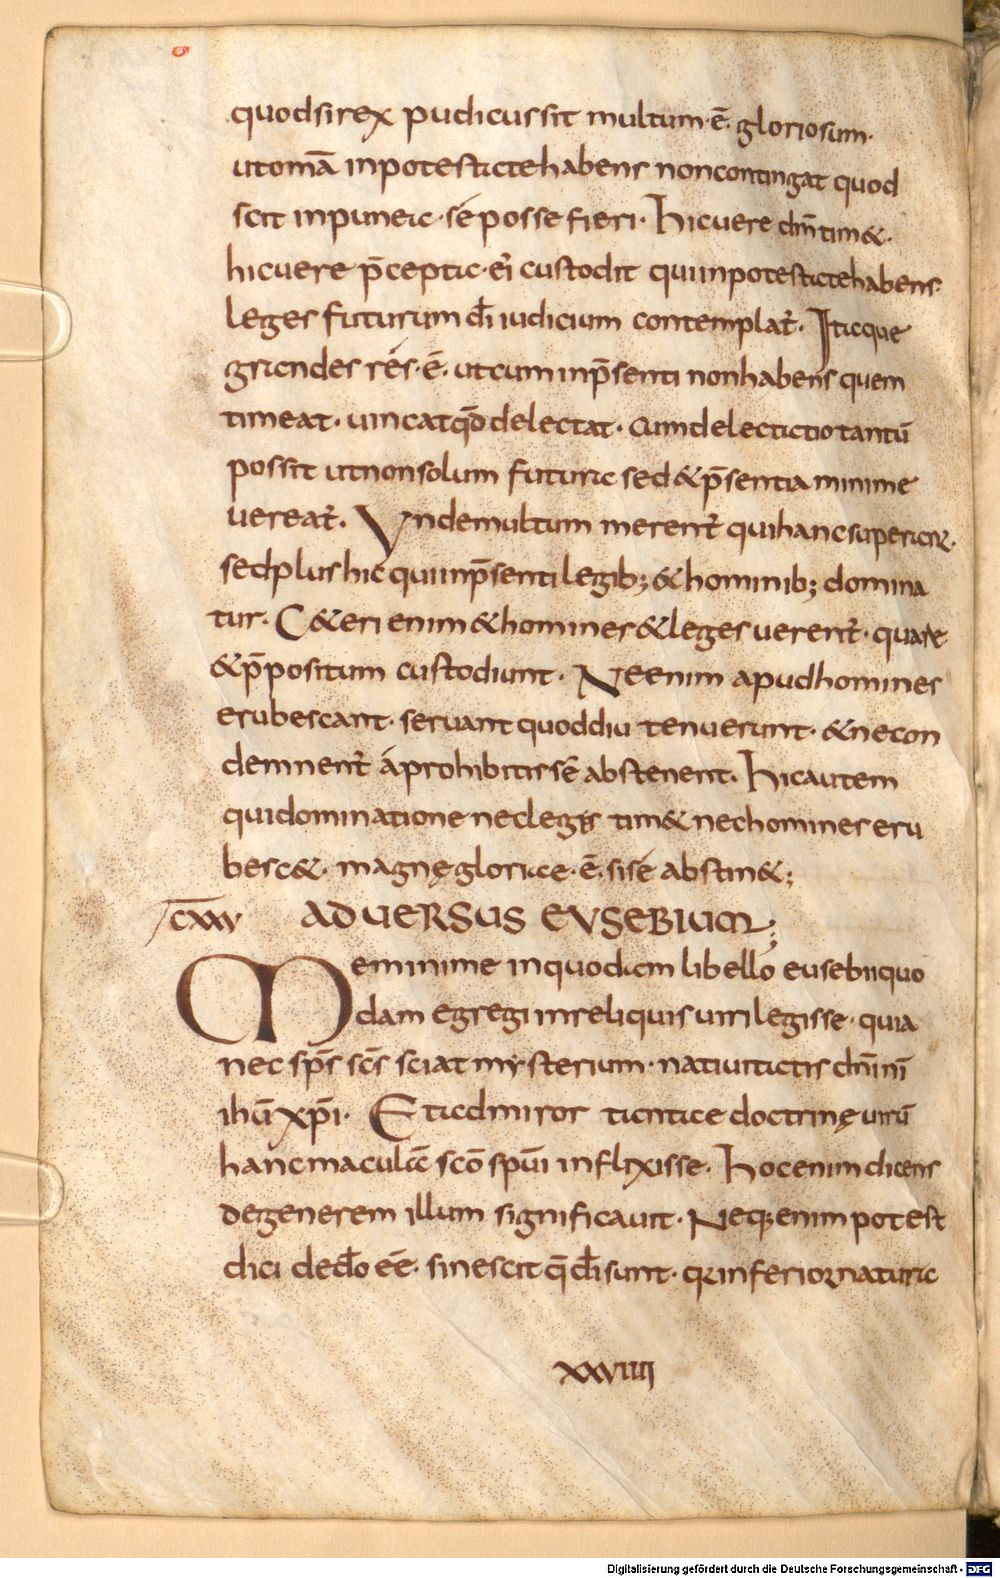 quod si rex pudicus sit multum·ē· gloriosum·
ut omā in potestate habens non contingat quod
scit inpune·sé posse fieri· Hic uere dm̄ tim&·
hic uere p̄cepta·ei᷒ custodit qui in potestate habens·
leges futurum dī iudicium contemplat᷒· Itaque
grandes rés·ē· ut cum in p̄senti non habens quem
timeat· uincat qd̄ delectat· cum delectatio tantū
possit ut non solum futura sed & p̄sentia minime
uereat᷒· Unde multum merent᷒ qui hanc superant·
sed plus hic qui in p̄senti legib; & hominib; domina
tur· C&eri enim & homines & leges uerent᷒· quare
& p̄positum custodiunt· Ne enim apud homines
erubescant· seruant quod diu tenuerunt· & ne con
demnent᷒ á prohibitis sē abstenent· Hic autem
qui dominatione nec leges tim& nec homines eru
besc&· magnę gloriae·ē· si sé abstin&;
CXXV ADUERSUS EUSEBIUM;
Memini me in quodam libello eusebii quo
dam egregii in reliquis uiri legisse· quia
nec sp̄s sc̄s sciat mysterium· natiuitatis dn̄i nī
ihū xp̄i· Et admiror tantae doctrinę uirū
hanc maculā scō spūi inflixisse· Hoc enim dicens
degenerem illum significauit· Neq; enim potest
dici de dō eē· si nescit q̄ dī sunt· qr inferior natura
xxviiii
Digitalisierung gefördert durch die Deutsche Forschungsgemeinschaft - DFG